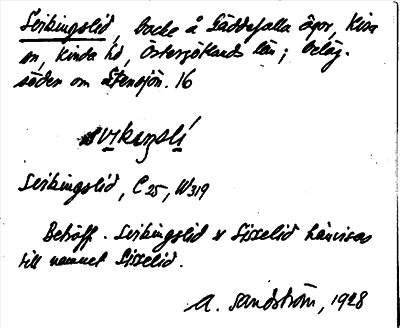 Svikingslid, backe å Gäddefalla ägor, Kisa
sn, Kinda hd, Östergötlands län; beläg.
söder om Stensjön. 16
svikaŋsli
Svikingslid, C 25, W319
Beträff. Svikingslid o Sisselid hänvisas
till namnet Sisselid.
A. Sandström, 1928